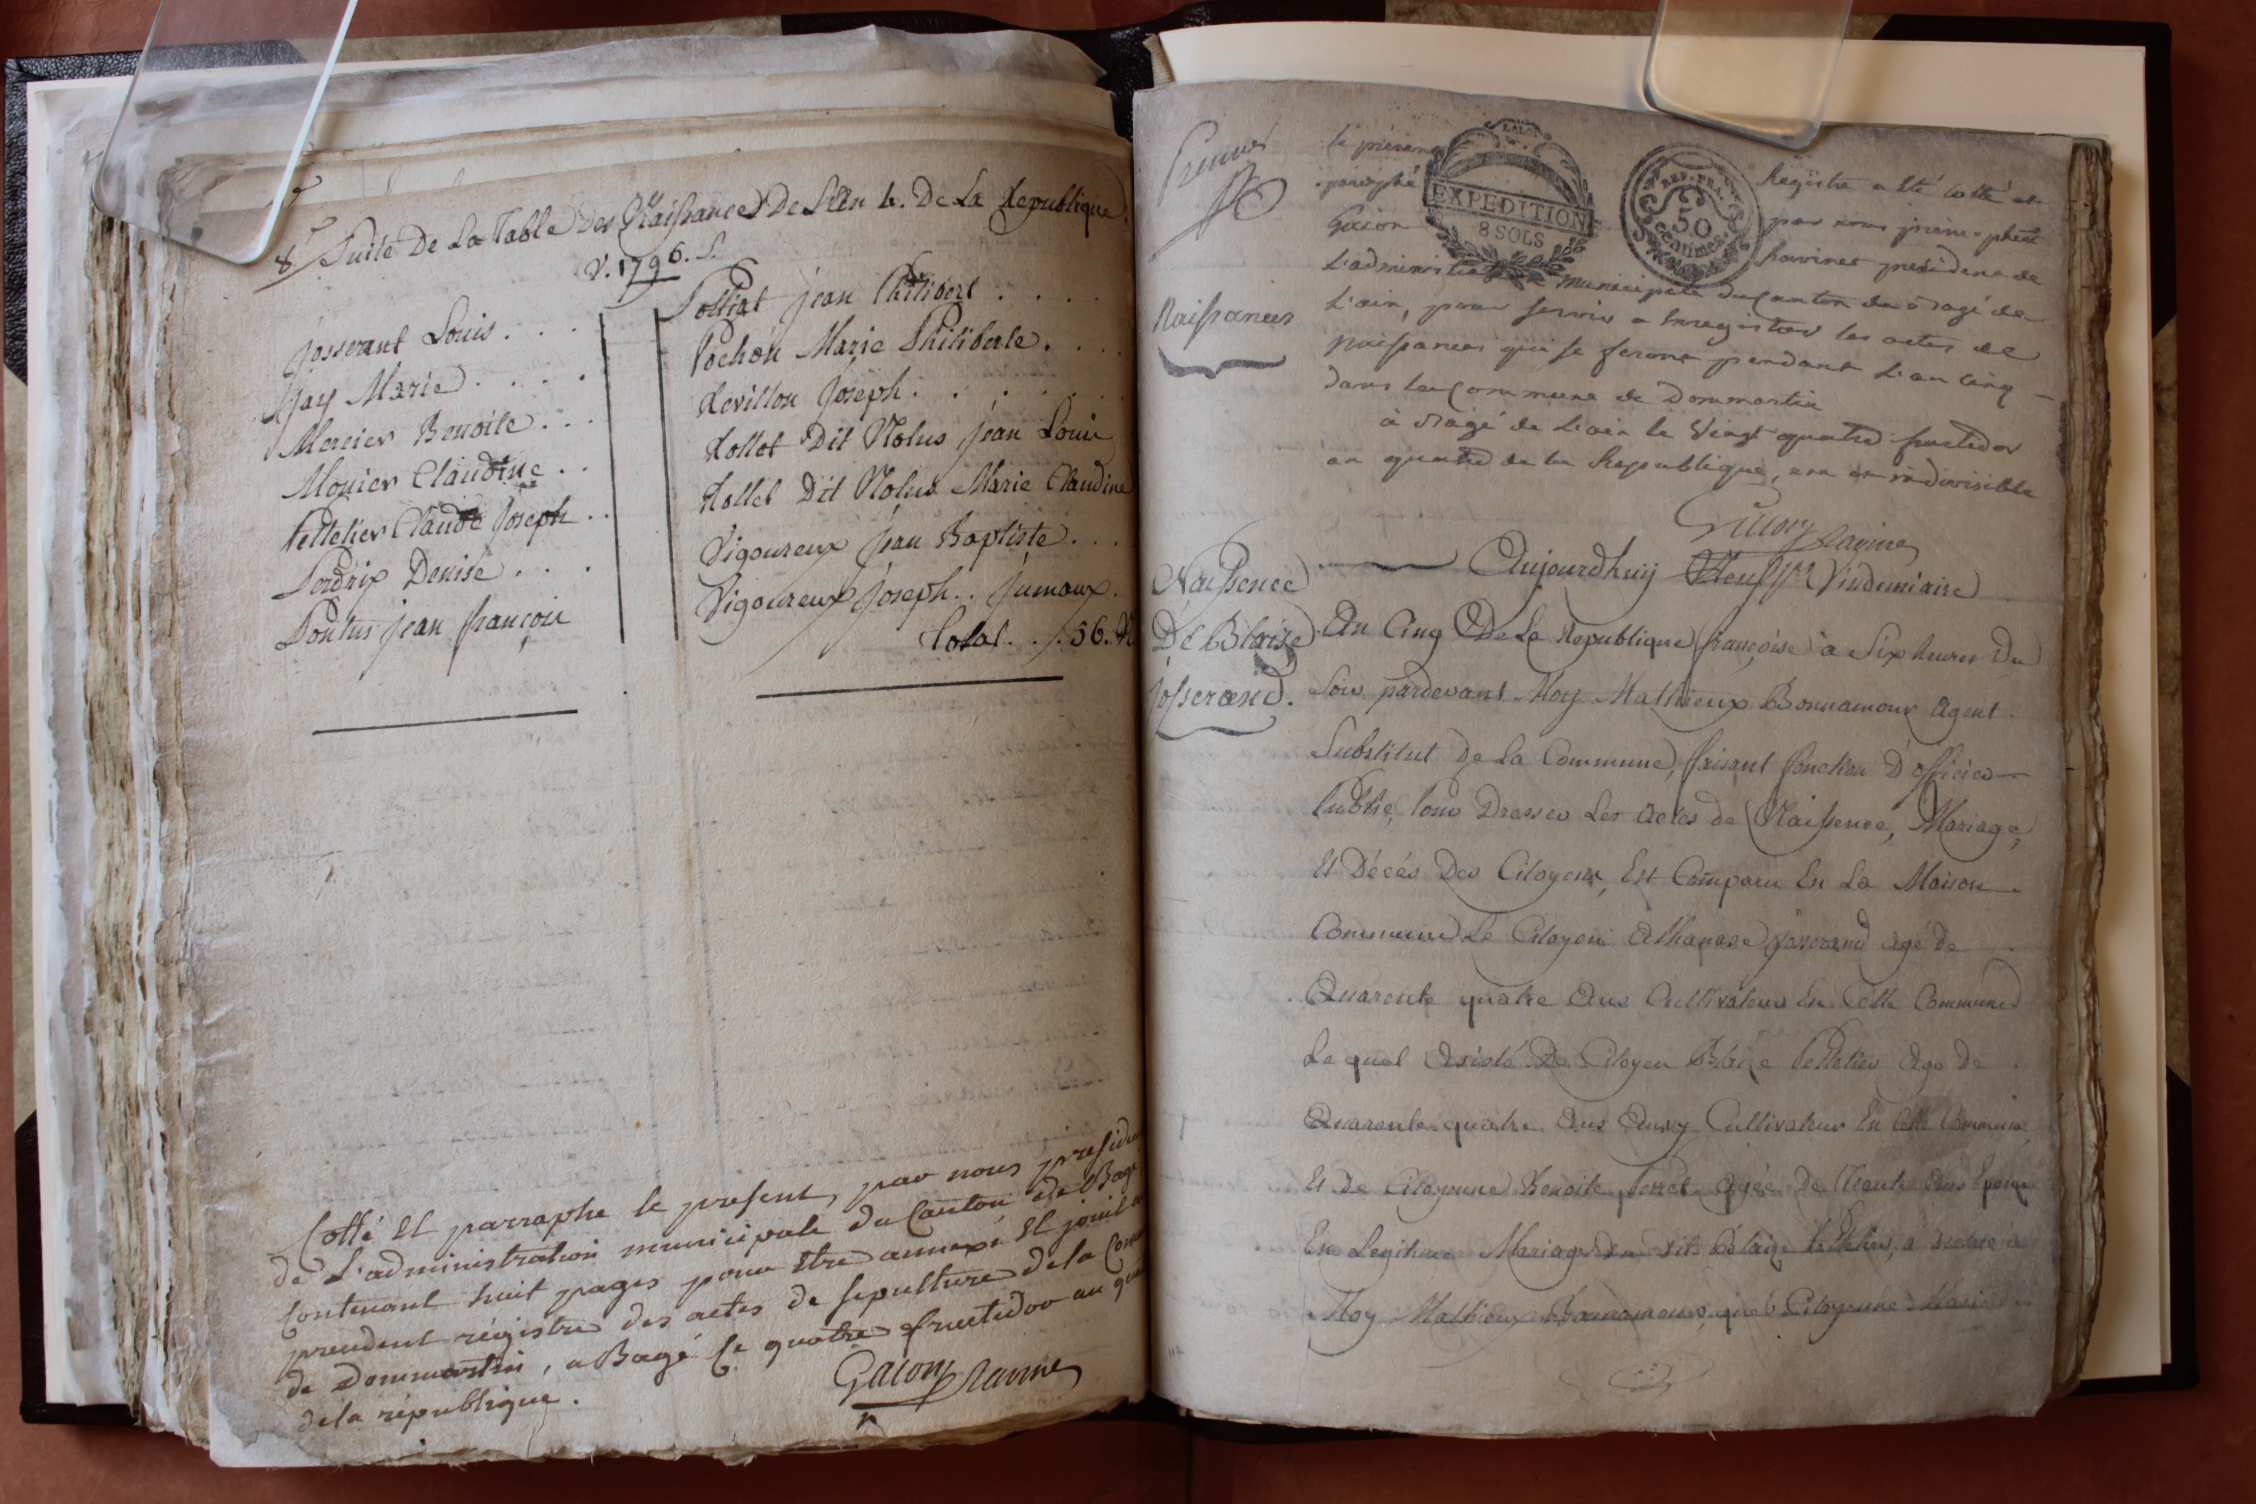 8.e Suite De La Table Des Naissances De L'an 4. De La Republique.
V. 1796. S.
Josserant Louis . . .
Jay Marie . . . .
Mercier Benoite . . .
Monier Claudine . .
Pelletier Claude Joseph . .
Perdrix Denise . . .
Pontus jean françois
Polliat jean Philibert . . . .
Pochon Marie Philiberte . . . .
Revillon Joseph . . . . .
Rollet Dit Nolus jean Louis
Rollet Dit Nolus Marie Claudine
Vigoureux jean Baptiste . . .
Vigoureux Joseph . . jumaux.
Total . . . 56.
Cotté Et parraphe le present, par nous preside
de L'administration municipale du Canton de Bagé
Contenant huit pages pour Etre annexé Et joint a
prendent régistre des actes de sepulture de la Com
de Dommartin, a Bagé le quatre fructidor an qua
de la république.
Gacon Ravine
Premier
le présent Registre a été cotté et
paraphé par nous
Gacon Ravinet président de
L'administration Municipale du Canton de Bagé de
L'ain, pour servir a Enregistrer les actes de
Naissances qui se feront pendant L'an Cinq
dans la Commune de Dommartin
à Bagé de L'ain le Vingt quatre fructidor
an quatre de la Republique, une et indivisible
Gacon Ravine
EXPEDITION
8 SOLS
REP. FRA.
50
centimes
Naissances
Naissence
De Blaise
Josserand.
Aujourdhuy Neuf Vindemiaire
An Cinq De La Republique françoise à Six heures Du
Soir pardevant Moy Mathieux Bonnamour Agent
Substitut De La Commune, faisant fonction D'officier
Public, Pour Dresser Les Actes de Naissence, Mariage,
Et Décés Des Citoyens, Est Comparu En La Maison
Commune Le Citoyen Athanase Josserand Agé De
Quarente quatre Ans Cultivateur En Cette Commune
Le quel Assisté De Citoyen Blaize Pelletier Age De
Quarente quatre Ans Aussy Cultivateur En Cette Commune
Et De Citoyenne Benoite Agée De Trente Ans Epouse
En Legitime Mariage du dit Blaize Pelletier, a declaré à
Moy Mathieux Bonnamour, que Citoyenne Marie